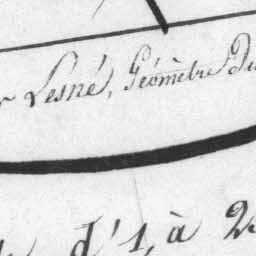 r Lesné, Géomètre Du
d'1, à 25